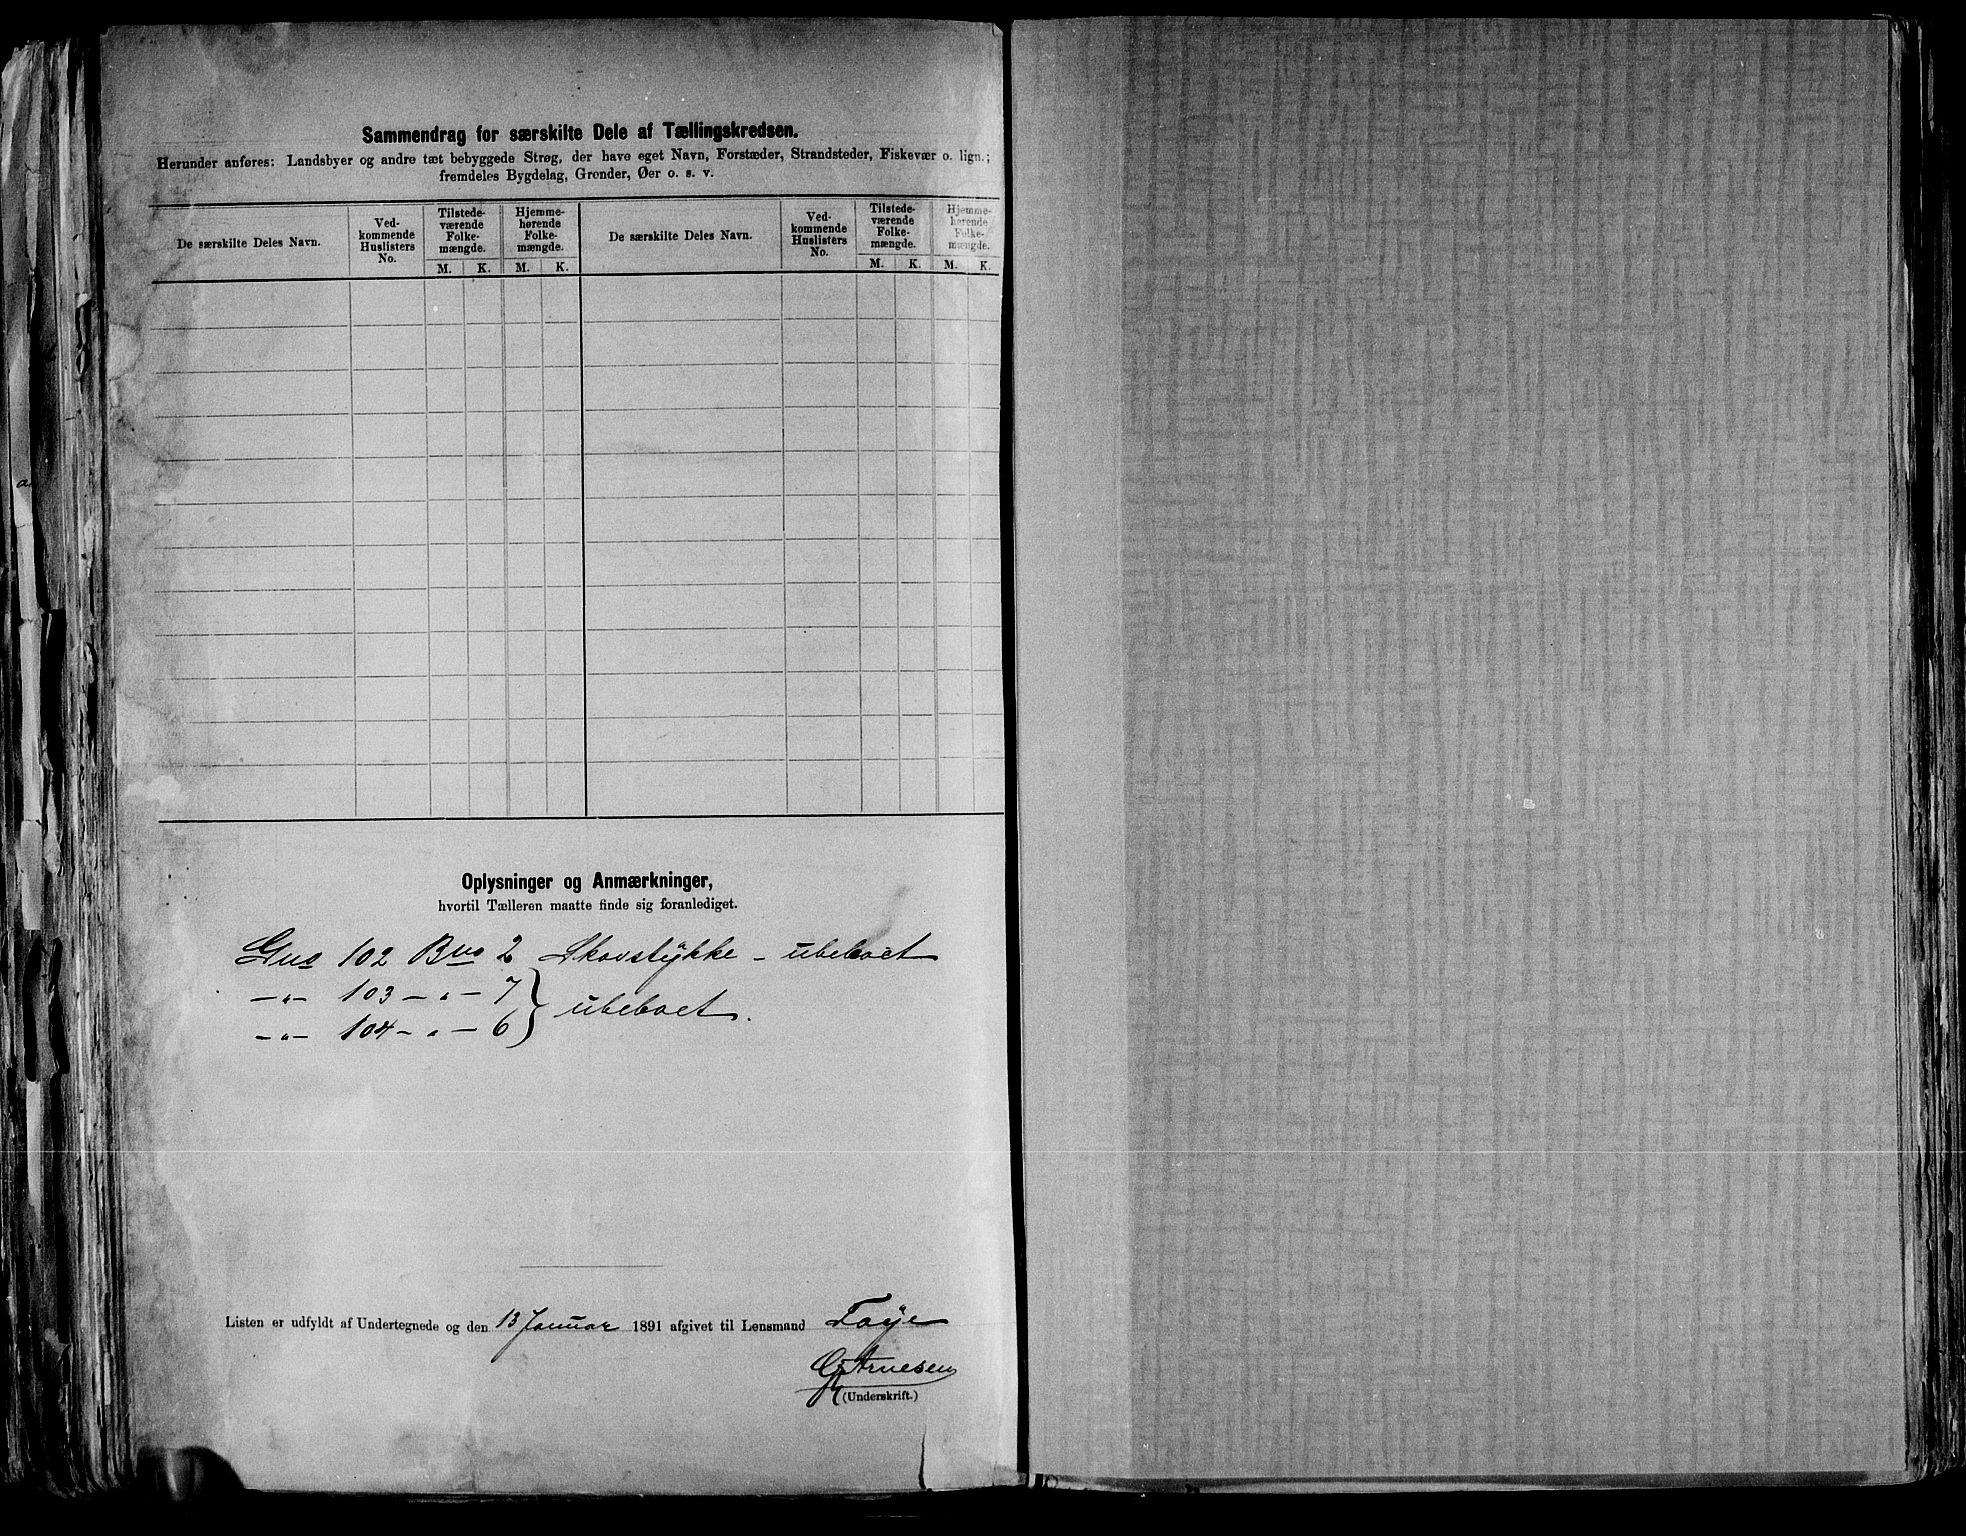 Sammendrag for særskilte Dele af Tællingskredsen.
Herunder anføres: Landsbyer og andre tæt bebyggede Strøg, der have eget Navn, Forstæder, Strandsteder, Fiskevær o. lign.;
fremdeles Bygdelag, Grender, Øer o. s. v.
De særskilte Deles Navn.
Ved-
kommende
Huslisters
No.
Tilstede-
værende
Folke-
mængde.
M. K.
Hjemme-
hørende
Folke-
mængde.
M. K.
De særskilte Deles Navn.
Ved-
kommende
Huslisters
No.
Tilstede-
værende
Folke-
mængde.
M. K.
Hjemme-
hørende
Folke-
mængde.
M. K.
Oplysninger og Anmærkninger,
hvortil Tælleren maatte finde sig foranlediget.
Gno 102 Bno 2 Skovstykke - ubeboet
—„— 103 —„— 7
—„— 104 —„— 6 } ubeboet.
Listen er udfyldt af Undertegnede og den 13 Januar 1891 afgivet til Lensmand Faye
Arnesen
(Underskrift.)